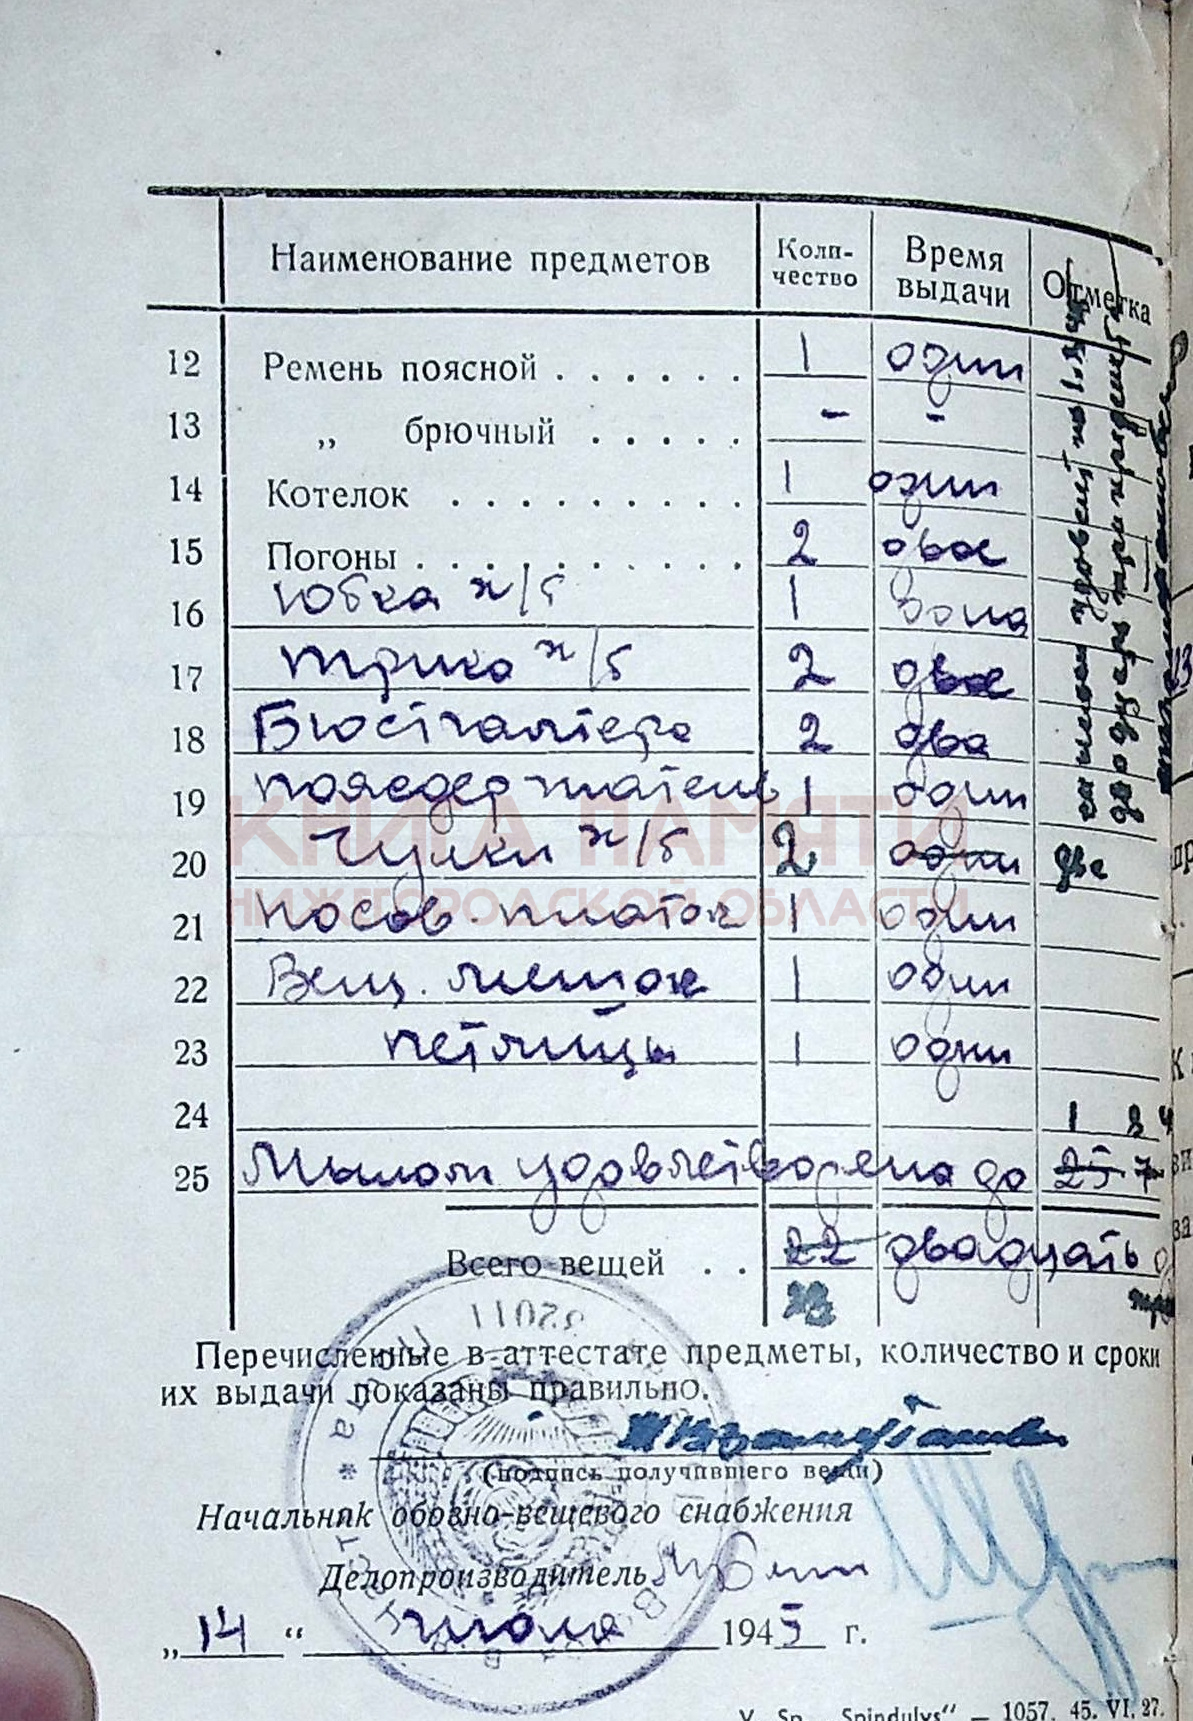 Наименование предметов Коли-чество Время выдачи Отметка
12 Ремень поясной . . . . . . 1 один
13 „ брючный . . . . . - -
14 Котелок . . . . . . . . . 1 один
15 Погоны . . . . . . . . . . 2 двое
16 Юбка х/б 1
17 Трико х/б 2 двое
18 Бюстгалтера 2 два
19 Поясдержатель 1 один
20 Чулки х/б 2 одни две
21 Носов. платок 1 один
22 Вещ. мешок 1 один
23 петлицы 1 одни
24 1
25 Мылом удовлетворена до 25 7
Всего вещей . . 22 двадцать
23
КНИГА ПАМЯТИ
НИЖЕГОРОДСКОЙ ОБЛАСТИ
Перечисленные в аттестате предметы, количество и сроки
их выдачи показаны правильно.
(подпись получившего вещи)
Начальник обозно-вещевого снабжения
Делопроизводитель
„14“ июля 1945 г.
V. Sp. „Spindulys“ — 1057. 45. VI. 27.